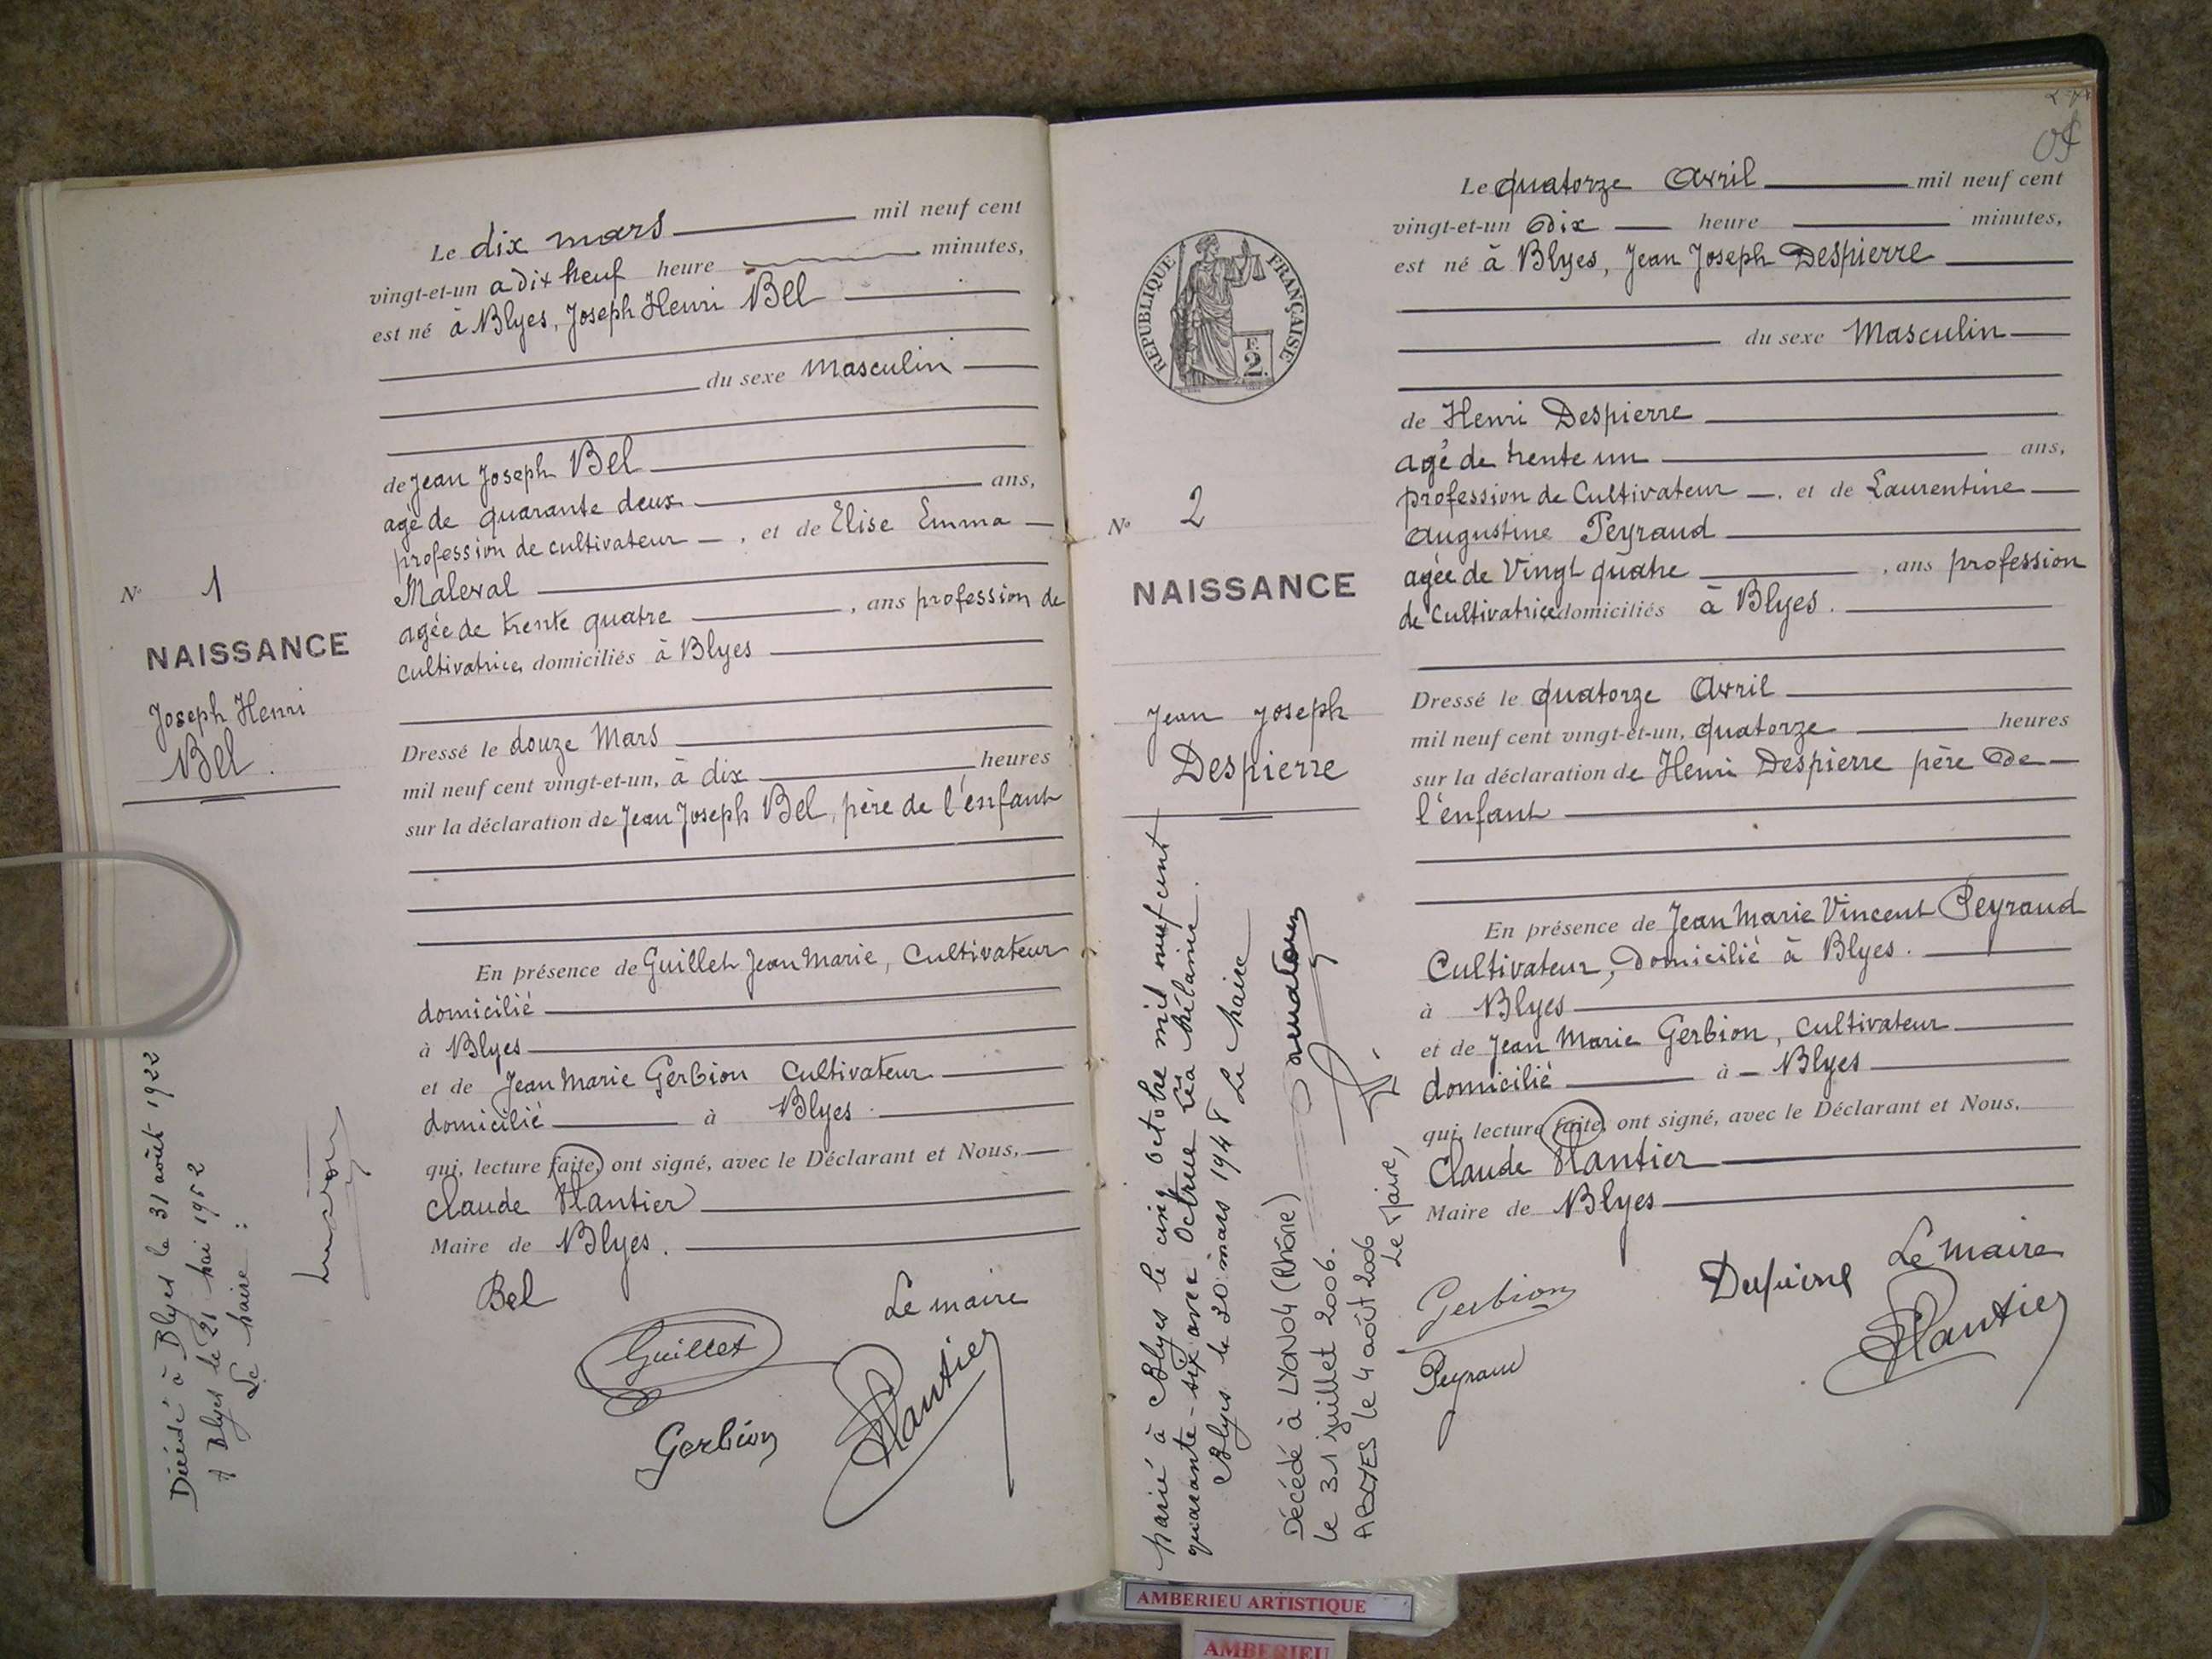 Le dix mars mil neuf cent
vingt-et-un a dix neuf heure minutes,
est né à Blyes, Joseph Henri Bel
du sexe Masculin
de Jean Joseph Bel
agé de quarante deux ans,
profession de cultivateur , et de Elise Emma
Maleval
agée de trente quatre , ans profession de
cultivatrice, domiciliés à Blyes
Dressé le douze Mars
mil neuf cent vingt-et-un, à dix heures
sur la déclaration de Jean Joseph Bel, père de l'enfant
En présence de Guillet Jean Marie, Cultivateur
domicilié
à Blyes
et de Jean Marie Gerbion Cultivateur
domicilié à Blyes
qui, lecture faite, ont signé, avec le Déclarant et Nous,
Claude Plantier
Maire de Blyes.
Bel
Le maire
Guillet
Gerbion
Plantier
N° 1
NAISSANCE
Joseph Henri
Bel.
Décédé à Blyes le 31 août 1922
A Blyes le 21 mai 1952
Le Maire :
Le quatorze Avril mil neuf cent
vingt-et-un dix heure minutes,
est né à Blyes, Jean Joseph Despierre
du sexe Masculin
de Henri Despierre
agé de trente un ans,
profession de Cultivateur . et de Laurentine
Augustine Peyraud
agée de Vingt quatre , ans profession
de Cultivatrice domiciliés à Blyes.
Dressé le quatorze Avril
mil neuf cent vingt-et-un, quatorze heures
sur la déclaration de Henri Despierre père de
l'enfant
En présence de Jean Marie Vincent Peyraud
Cultivateur, domicilié à Blyes.
à Blyes
et de Jean Marie Gerbion, Cultivateur
domicilié à Blyes
qui, lecture faite, ont signé, avec le Déclarant et Nous,
Claude Plantier
Maire de Blyes
Gerbion
Despierre
Le maire
Peyraud
Plantier
RÉPUBLIQUE FRANÇAISE
F.
2.
N° 2
NAISSANCE
Jean Joseph
Despierre
Marié à Blyes le cinq octobre mil neuf cent
quarante-six avec Octrue Léa Mélanie.
Blyes le 20 mars 1948 Le Maire
Décédé à LYON 04 (Rhône)
le 31 juillet 2006.
le 4 août 2006
Le Maire,
AMBERIEU ARTISTIQUE
AMBERIEU